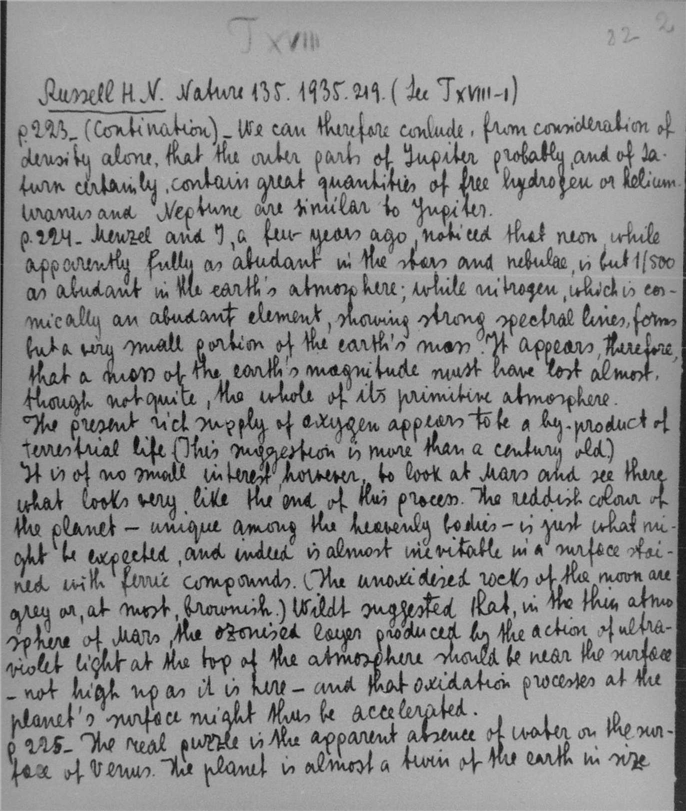 T XVIII
22 2
Russell H.N. Nature 135. 1935. 219. (See T XVIII-1)
p.223_ (Contination)_ We can therefore conlude, from consideration of
density alone, that the outer parts of Jupiter probably, and of Sa-
turn certainly, contain great quantities of free hydrogen or helium.
Uranus and Neptune are similar to Jupiter.
p.224_ Menzel and I, a few years ago, noticed that neon, while
apparently fully as abudant in the stars and nebulae, is but 1/500
as abudant in the earth's atmosphere; while nitrogen, which is cos-
mically an abudant element, showing strong spectral lines, forms
but a very small portion of the earth's mass. It appears, therefore,
that a mass of the earth's magnitude must have lost almost,
though not quite, the whole of its primitive atmosphere.
The present rich supply of oxygen appears to be a by-product of
terrestrial life (This suggestion is more than a century old.)
It is of no small interest, however, to look at Mars and see there
what looks very like the end of this process. The reddish colour of
the planet – unique among the heavenly bodies – is just what mi-
ght be expected, and indeed is almost inevitable in a surface stai-
ned with ferric compounds. (The unoxidised rocks of the moon are
grey or, at most, brownish.) Wildt suggested that, in the thin atmo
sphere of Mars, the ozonised layer produced by the action of ultra-
violet light at the top of the atmosphere should be near the surface
– not high up as it is here – and that oxidation processes at the
planet's surface might thus be accelerated.
p 225_ The real puzzle is the apparent absence of water on the sur-
face of Venus. The planet is almost a twin of the earth in size